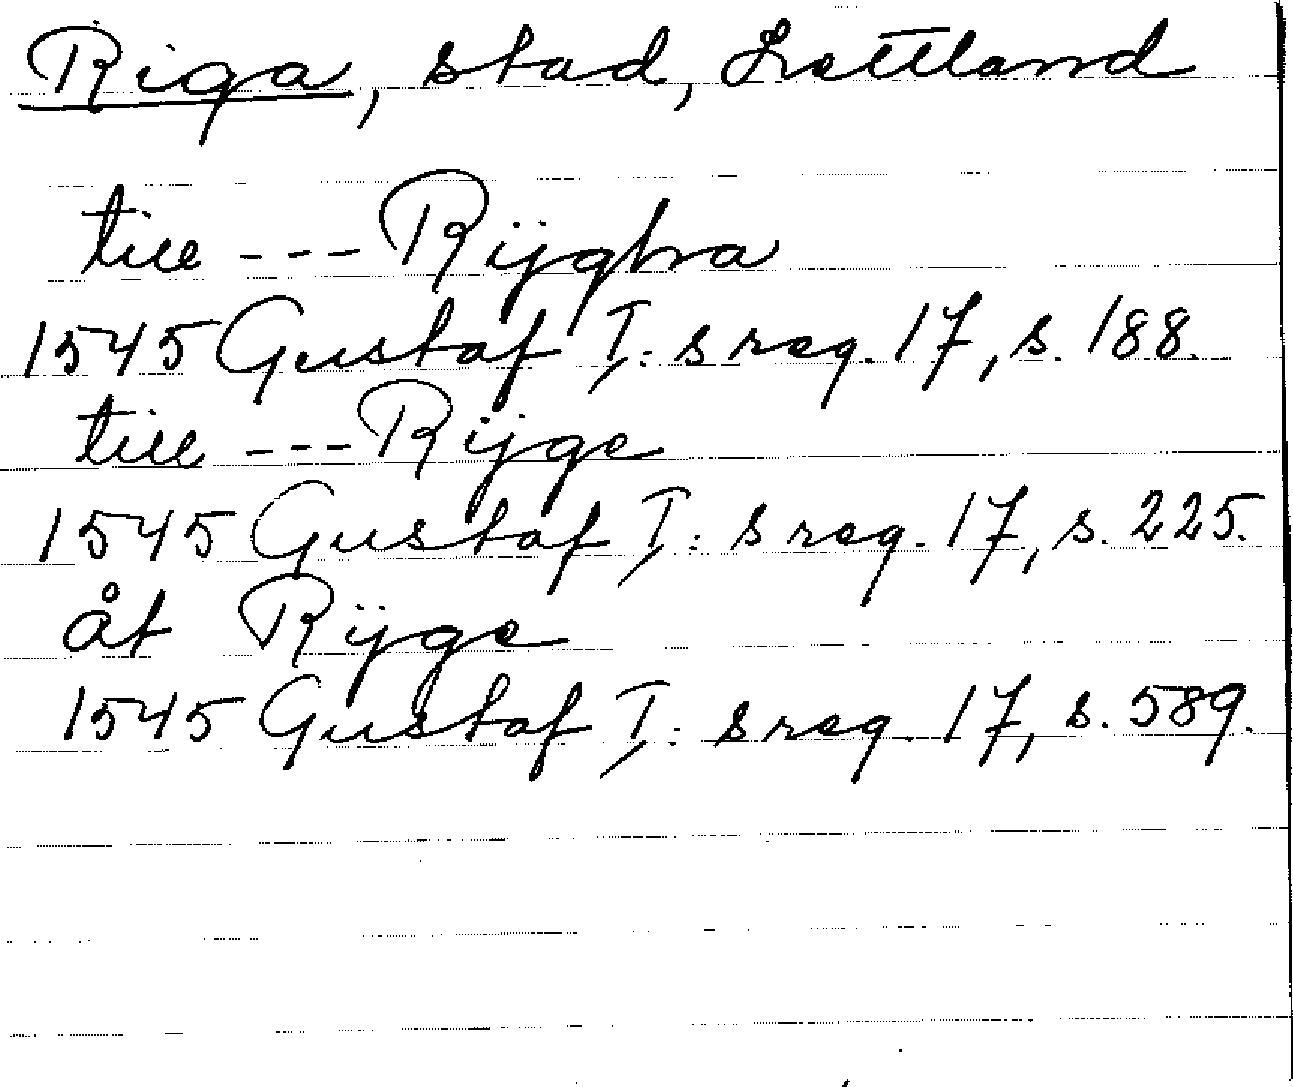 Riga, stad, Lettland
till --- Rÿgha
1545 Gustaf I: s reg. 17, s. 188.
till --- Rÿge
1545 Gustaf I: s reg. 17, s. 225.
åt Rÿge
1545 Gustaf I: s reg. 17, s. 589.